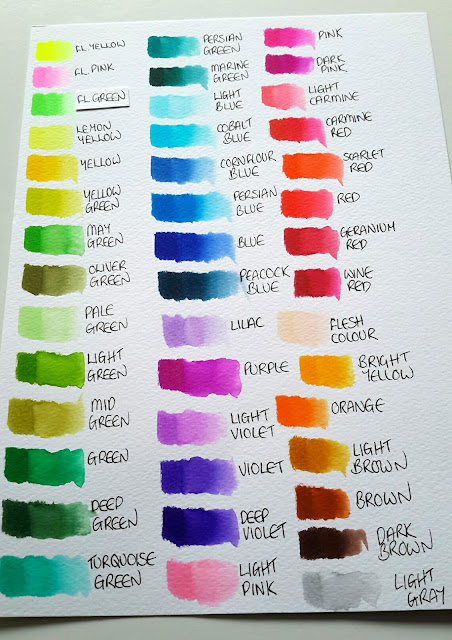 FL. YELLOW
FL. PINK
FL GREEN
LEMON
YELLOW
YELLOW
YELLOW
GREEN
MAY
GREEN
OLIVER
GREEN
PALE
GREEN
LIGHT
GREEN
MID
GREEN
GREEN
DEEP
GREEN
TURQUOISE
GREEN
PERSIAN
GREEN
MARINE
GREEN
LIGHT
BLUE
COBALT
BLUE
CORNFLOUR
BLUE
PERSIAN
BLUE
BLUE
PEACOCK
BLUE
LILAC
PURPLE
LIGHT
VIOLET
VIOLET
DEEP
VIOLET
LIGHT
PINK
PINK
DARK
PINK
LIGHT
CARMINE
CARMINE
RED
SCARLET
RED
RED
GERANIUM
RED
WINE
RED
FLESH
COLOUR
BRIGHT
YELLOW
ORANGE
LIGHT
BROWN
BROWN
DARK
BROWN
LIGHT
GRAY